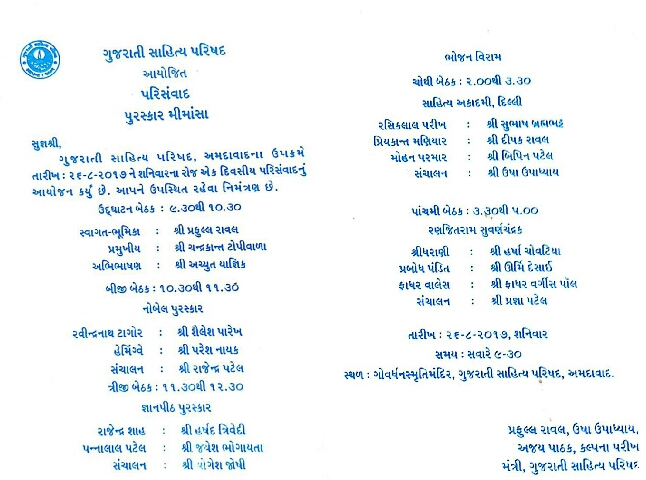 ગુજરાતી સાહિત્ય પરિષદ
આયોજિત
પરિસંવાદ
પુરસ્કાર મીમાંસા
સુજ્ઞશ્રી,
ગુજરાતી સાહિત્ય પરિષદ, અમદાવાદના ઉપક્રમે
તારીખ : ૨૬-૮-૨૦૧૭ ને શનિવારના રોજ એક દિવસીય પરિસંવાદનું
આયોજન કર્યું છે. આપને ઉપસ્થિત રહેવા નિમંત્રણ છે.
ઉદ્‌ઘાટન બેઠક : ૯.૩૦થી ૧૦.૩૦
સ્વાગત-ભૂમિકા : શ્રી પ્રફુલ્લ રાવલ
પ્રમુખીય : શ્રી ચન્દ્રકાન્ત ટોપીવાળા
અભિભાષણ : શ્રી અચ્યુત યાજ્ઞિક
બીજી બેઠક : ૧૦.૩૦થી ૧૧.૩૦
નોબેલ પુરસ્કાર
રવીન્દ્રનાથ ટાગોર : શ્રી શૈલેશ પારેખ
હેમિંગ્વે : શ્રી પરેશ નાયક
સંચાલન : શ્રી રાજેન્દ્ર પટેલ
ત્રીજી બેઠક : ૧૧.૩૦થી ૧૨.૩૦
જ્ઞાનપીઠ પુરસ્કાર
રાજેન્દ્ર શાહ : શ્રી હર્ષદ ત્રિવેદી
પન્નાલાલ પટેલ : શ્રી જયેશ ભોગાયતા
સંચાલન : શ્રી યોગેશ જોષી
ભોજન વિરામ
ચોથી બેઠક : ૨.૦૦થી ૩.૩૦
સાહિત્ય અકાદમી, દિલ્લી
રસિકલાલ પરીખ : શ્રી સુભાષ બ્રહ્મભટ્ટ
પ્રિયકાન્ત મણિયાર : શ્રી દીપક રાવલ
મોહન પરમાર : શ્રી બિપિન પટેલ
સંચાલન : શ્રી ઉષા ઉપાધ્યાય
પાંચમી બેઠક : ૩.૩૦થી ૫.૦૦
રણજિતરામ સુવર્ણચંદ્રક
શ્રીધરાણી : શ્રી હર્ષા ચોવટિયા
પ્રબોધ પંડિત : શ્રી ઊર્મિ દેસાઈ
ફાધર વાલેસ : શ્રી ફાધર વર્ગીસ પૉલ
સંચાલન : શ્રી પ્રજ્ઞા પટેલ
તારીખ : ૨૬-૮-૨૦૧૭, શનિવાર
સમય : સવારે ૯-૩૦
સ્થળ : ગોવર્ધનસ્મૃતિમંદિર, ગુજરાતી સાહિત્ય પરિષદ, અમદાવાદ.
પ્રફુલ્લ રાવલ, ઉષા ઉપાધ્યાય,
અજય પાઠક, કલ્પના પરીખ
મંત્રી, ગુજરાતી સાહિત્ય પરિષદ